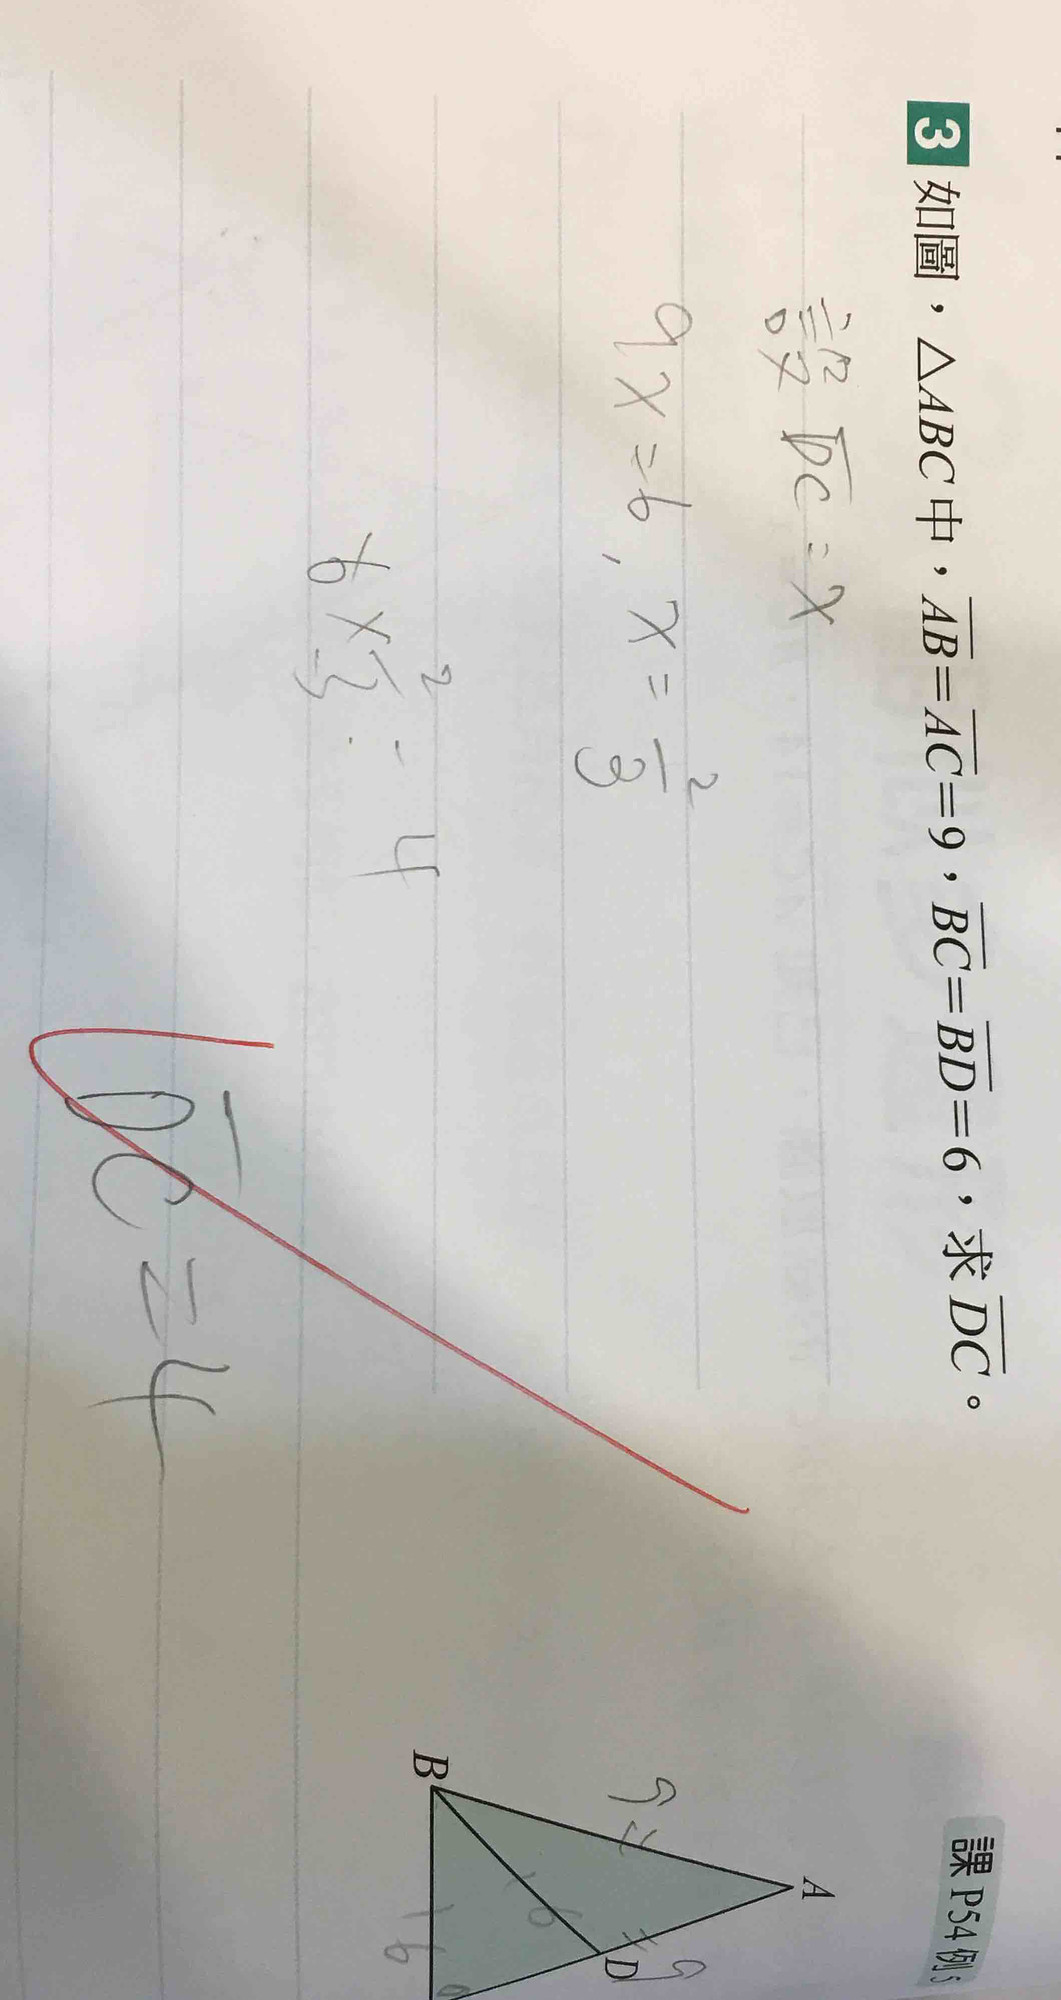 3 如圖，△ABC中，AB=AC=9，BC=BD=6，求DC。
課P54例5
設DC=x
9x=6，x=2/3
6x2/3=4
DC=4
A
9
9
D
6
B
6